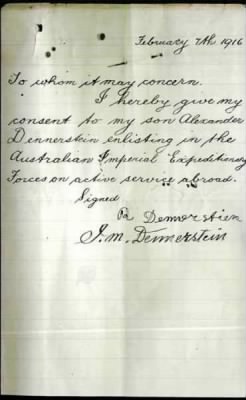 February 7th 1916
To whom it may concern.
I hereby give my
consent to my son Alexander
Dennerstein enlisting in the
Australian Imperial Expeditiony
Forces on active service abroad.
Signed
R Dennerstien
J. M. Dennerstein